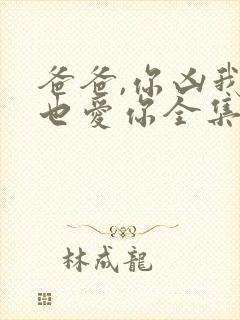 爸爸,你凶我
也爱你全集
林成龍